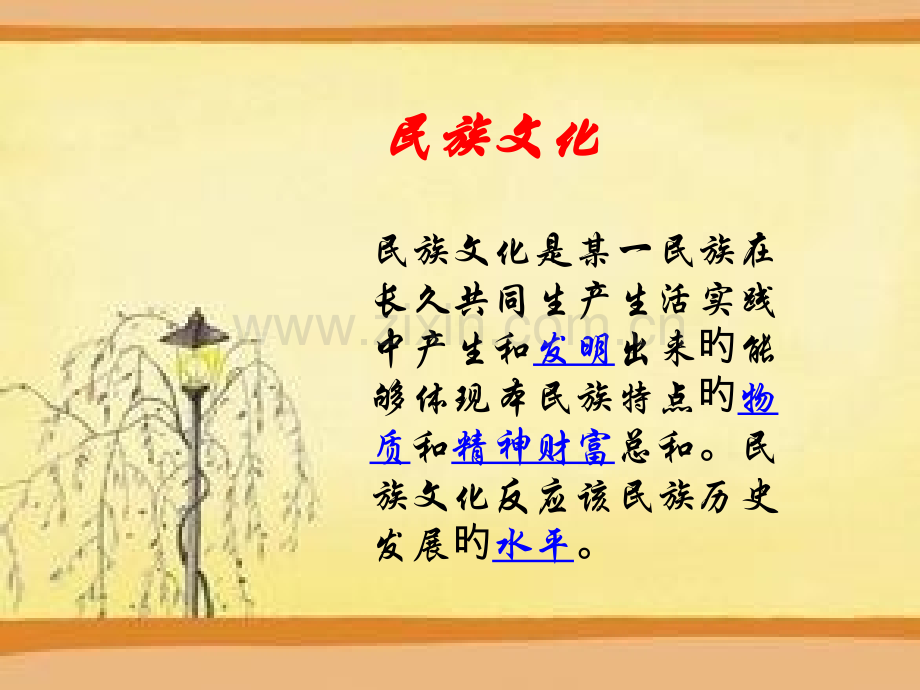 民族文化
民族文化是某一民族在
长久共同生产生活实践
中产生和发明出来旳能
够体现本民族特点旳物
质和精神财富总和。民
族文化反应该民族历史
发展旳水平。
www.zixin.com.cn